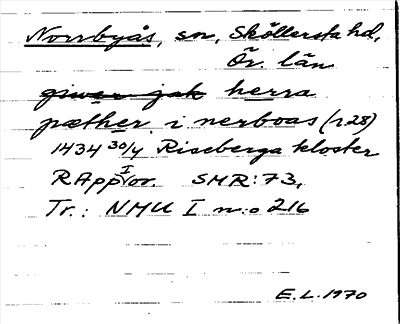 Norrbyås, sn, Sköllersta hd,
Ör. län
giwer jak herra
pæther i nerboas (r 28)
1434 30/4 Riseberga kloster
RAppIor. SMR: 73,
Tr.: NMU I n:o 216
E.L. 1970